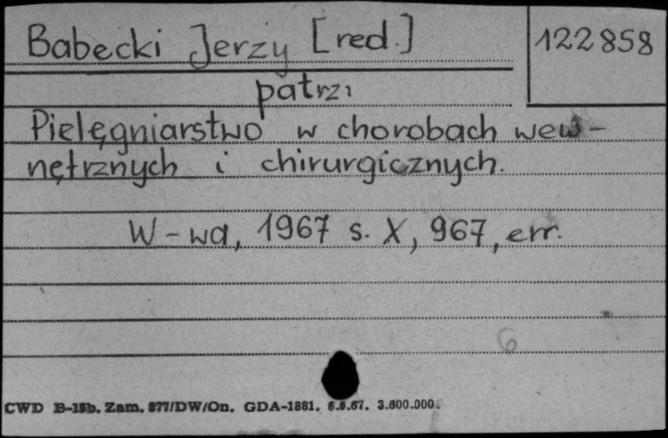 Babecki Jerzy [red.]
122858
patrz:
Pielęgniarstwo w chorobach wew-
nętrznych i chirurgicznych.
W-wa, 1967 s. X, 967, err.
6
CWD B-15b. Zam. 877/DW/On. GDA-1881. 6.6.67. 3.600.000.